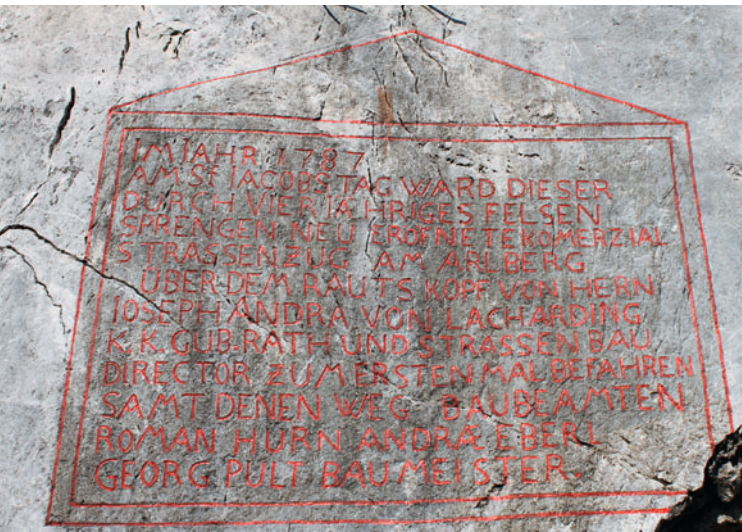 IM IAHR 1787
AM St IACOBS TAG WARD DIESER
DURCH VIER IÄHRIGES FELSEN
SPRENGEN NEU ERÖFNETE KOMERZIAL
STRASSENZUG AM ARLBERG
ÜBER DEM RAUTS KOPF VON HERN
IOSEPH ANDRÄ VON LACHARDING
K. K. GUB. RATH UND STRASSEN BAU
DIRECTOR ZUM ERSTEN MAL BEFAHREN
SAMT DENEN WEG BAUBEAMTEN
ROMAN HURN ANDRÆ EBERL
GEORG PULT BAUMEISTER.